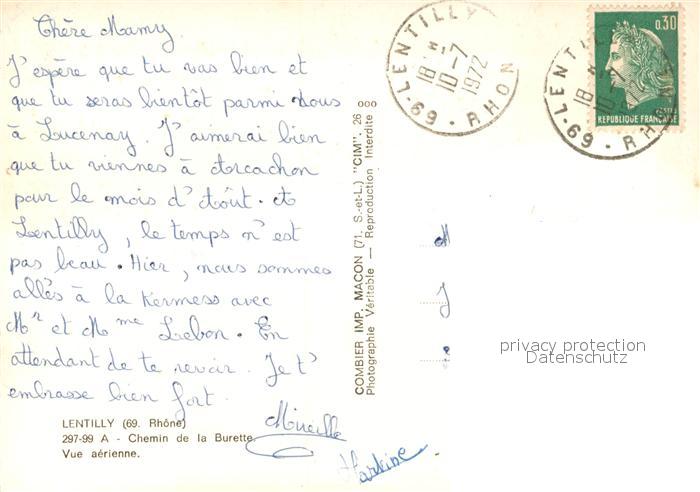 Chère Mamy.
J'espère que tu vas bien et
que tu seras bientôt parmi nous
à Lucenay. J'aimerai bien
que tu viennes à Arcachon
pour le mois d'Août. A
Lentilly, le temps n'est
pas beau. Hier, nous sommes
allés à la Kermess avec
Mr et Mme Lebon. En
attendant de te revoir. Je t'
embrasse bien fort.
Mireille
LENTILLY (69. Rhône)
297-99 A - Chemin de la Burette
Vue aérienne.
COMBIER IMP. MACON (71. S.-et-L.) "CIM". 26 000
Photographie Véritable — Reproduction Interdite
69 - LENTILLY - RHONE
18 H
10-7
1972
0,30
REPUBLIQUE FRANÇAISE
M
J
privacy protection
Datenschutz